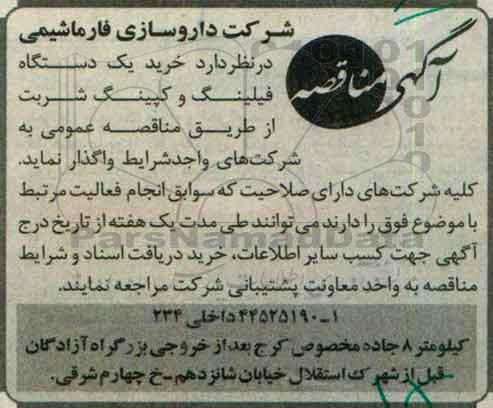 آگهی مناقصه
شرکت داروسازی فارماشیمی
درنظردارد خرید یک دستگاه
فیلینگ و کپینگ شربت
از طریق مناقصه عمومی به
شرکت‌های واجدشرایط واگذار نماید.
کلیه شرکت‌های دارای صلاحیت که سوابق انجام فعالیت مرتبط
با موضوع فوق را دارند می‌توانند طی مدت یک هفته از تاریخ درج
آگهی جهت کسب سایر اطلاعات، خرید دریافت اسناد و شرایط
مناقصه به واحد معاونت پشتیبانی شرکت مراجعه نمایند.
۱-۴۴۵۲۵۱۹۰ داخلی ۲۳۴
کیلومتر ۸ جاده مخصوص کرج بعد از خروجی بزرگراه آزادگان
قبل از شهرک استقلال خیابان شانزدهم-خ چهارم شرقی.
ParsNamadData